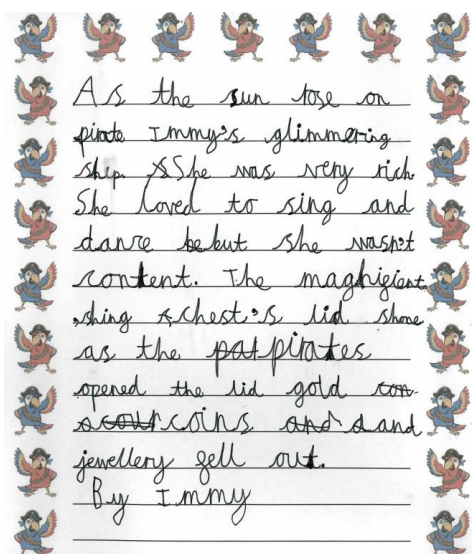 As the sun rose on
pirate Immy's glimmering
ship. She was very rich.
She loved to sing and
dance but she wasn't
content. The maghigient
shing chest's lid shone
as the pirates
opened the lid gold
coins and
jewellery fell out.
By Immy